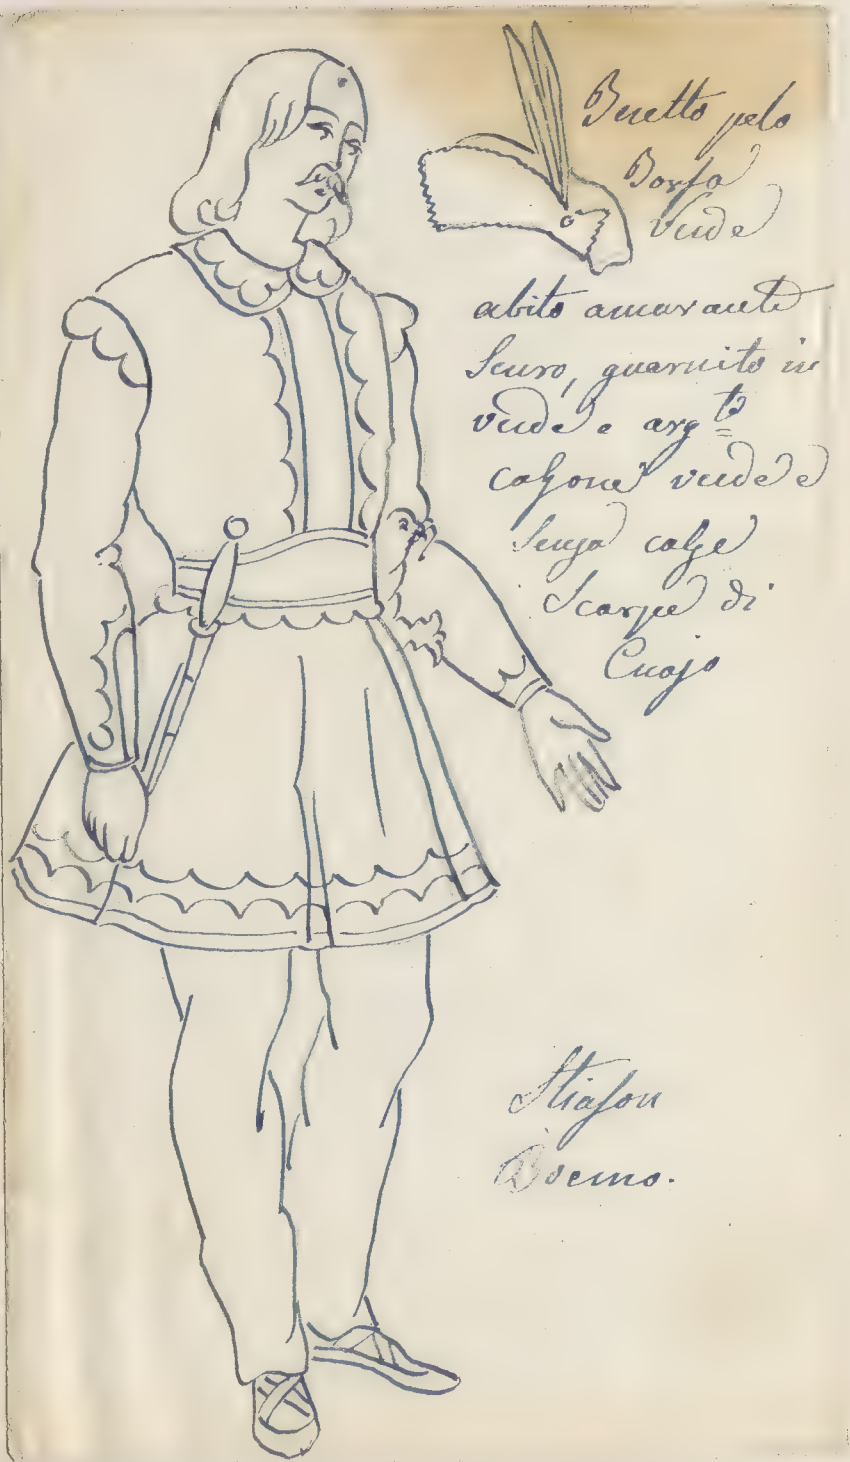 Beretto pelo
Borsa
Verde
abito amarante
Scuro, guernito in
verde e arg.to
calzone verde e
Senza calze
Scarpe di
Cuojo
Stiason
Boemo.